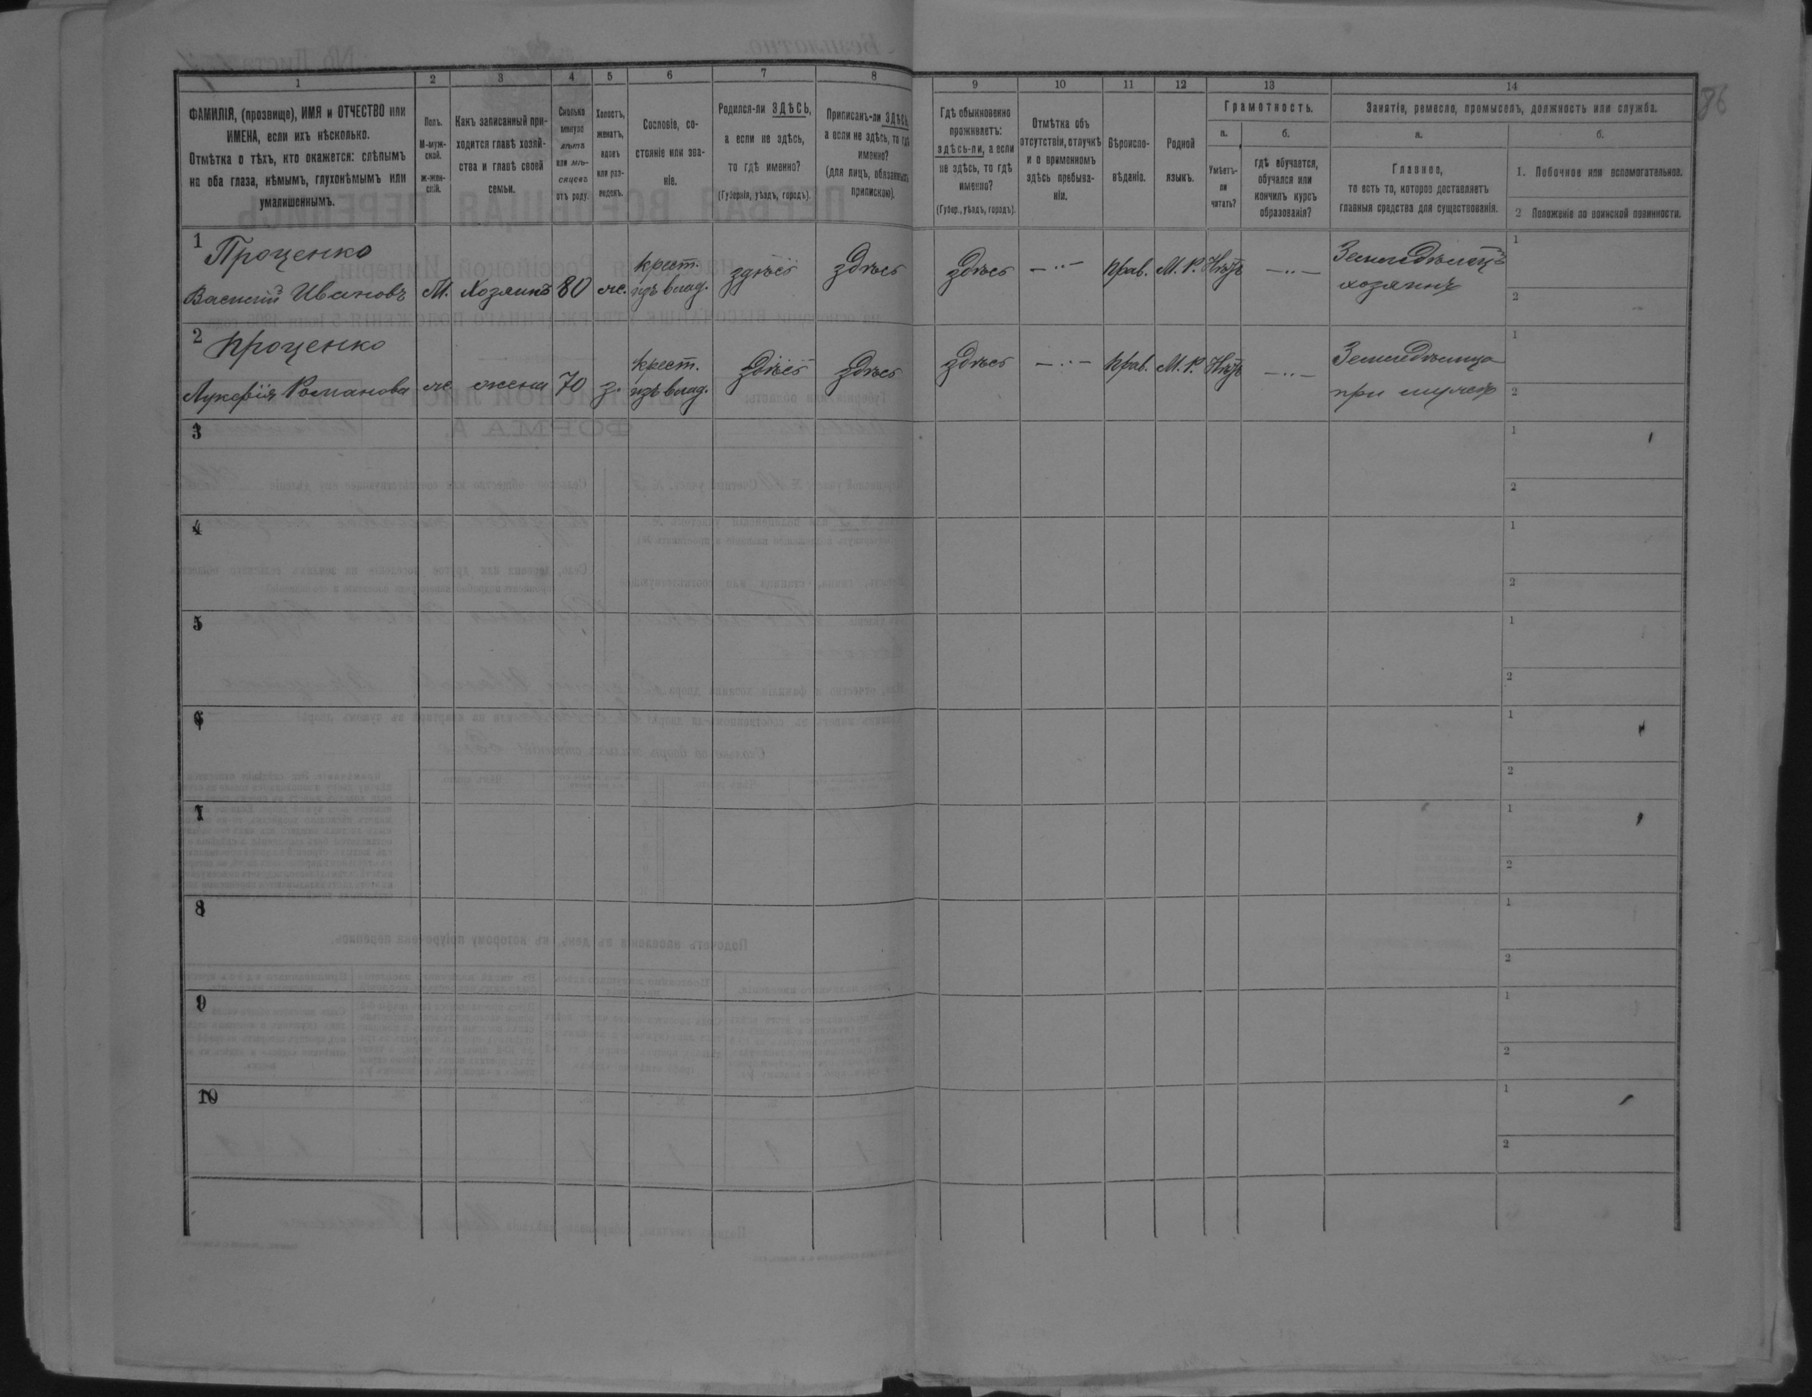 86
1 2 3 4 5 6 7 8 9 10 11 12 13 14
ФАМИЛІЯ, (прозвище), ИМЯ и ОТЧЕСТВО или
ИМЕНА, если ихъ нѣсколько.
Отмѣтка о тѣхъ, кто окажется: слѣпымъ
на оба глаза, нѣмымъ, глухонѣмымъ или
умалишеннымъ.
Полъ.
М-муж-
ской.
ж-жен-
скій.
Какъ записанный при-
ходится главѣ хозяй-
ства и главѣ своей
семьи.
Сколько
минуло
лѣтъ
или мѣ-
сяцевъ
отъ роду.
Холостъ,
женатъ,
вдовъ
или раз-
веденъ.
Сословіе, со-
стояніе или зва-
ніе.
Родился-ли ЗДѢСЬ,
а если не здѣсь,
то гдѣ именно?
(Губернія, уѣздъ, городъ).
Приписанъ-ли ЗДѢСЬ,
а если не здѣсь, то гдѣ
именно?
(для лицъ, обязанныхъ
припискою).
Гдѣ обыкновенно
проживаетъ:
здѣсь-ли, а если
не здѣсь, то гдѣ
именно?
(Губер., уѣздъ, городъ).
Отмѣтка объ
отсутствіи, отлучкѣ
и о временномъ
здѣсь пребыва-
ніи.
Вѣроиспо-
вѣданіе.
Родной
языкъ.
Грамотность.
а.
Умѣетъ-
ли
читать?
б.
гдѣ обучается,
обучался или
кончилъ курсъ
образованія?
Занятіе, ремесло, промыселъ, должность или служба.
а.
Главное,
то есть то, которое доставляетъ
главныя средства для существованія.
б.
1. Побочное или вспомогательное.
2 Положеніе по воинской повинности.
1 Проценко
Василій Ивановъ М. Хозяинъ 80 ж. крест. изъ влад. здѣсь здѣсь здѣсь — " — прав. М. Р. Нѣтъ — " — Земледѣлецъ хозяинъ 1 2
2 Проценко
Лукерія Романова ж. жена 70 з. крест. изъ влад. здѣсь здѣсь здѣсь — " — прав. М. Р. Нѣтъ — " — Земледѣлица при мужѣ 1 2
3 1 2
4 1 2
5 1 2
6 1 2
7 1 2
8 1 2
9 1 2
10 1 2